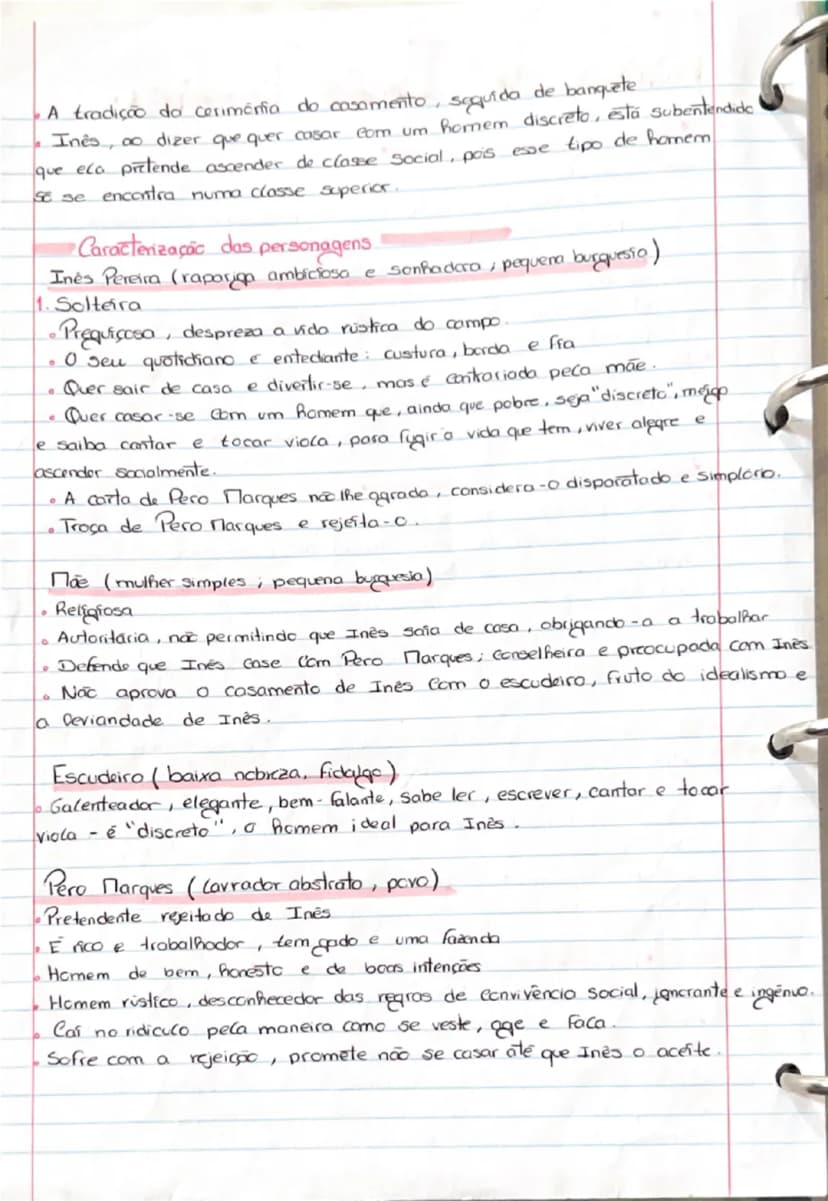 • A tradição da cerimónia do casamento, seguida de banquete
• Inês, ao dizer que quer casar com um homem discreto, está subentendido
que ela pretende ascender de classe social, pois esse tipo de homem
só se encontra numa classe superior.
Caracterização das personagens
Inês Pereira (rapariga ambiciosa e sonhadora; pequena burguesia)
1. Solteira
• Preguiçosa, despreza a vida rústica do campo.
• O seu quotidiano é entediante: custura, borda e fia
• Quer sair de casa e divertir-se, mas é contrariada pela mãe.
• Quer casar-se com um homem que, ainda que pobre, seja "discreto", meigo
e saiba cantar e tocar viola, para fugir à vida que tem, viver alegre e
ascender socialmente.
• A carta de Pero Marques não lhe agrada, considera-o disparatado e simplório.
• Troça de Pero Marques e rejeita-o.
Mãe (mulher simples; pequena burguesia)
• Religiosa
• Autoritária, não permitindo que Inês saia de casa, obrigando-a a trabalhar
• Defende que Inês case com Pero Marques; conselheira e preocupada com Inês
• Não aprova o casamento de Inês com o escudeiro, fruto do idealismo e
a leviandade de Inês.
Escudeiro (baixa nobreza, fidalgo)
• Galenteador, elegante, bem-falante, sabe ler, escrever, cantar e tocar
viola - é "discreto", o homem ideal para Inês.
Pero Marques (lavrador abstrato, povo)
• Pretendente rejeitado de Inês
• É rico e trabalhador, tem gado e uma fazenda
• Homem de bem, honesto e de boas intenções
• Homem rústico, desconhecedor das regras de convivência social, ignorante e ingénuo.
• Cai no ridículo pela maneira como se veste, age e faca.
• Sofre com a rejeição, promete não se casar até que Inês o aceite.